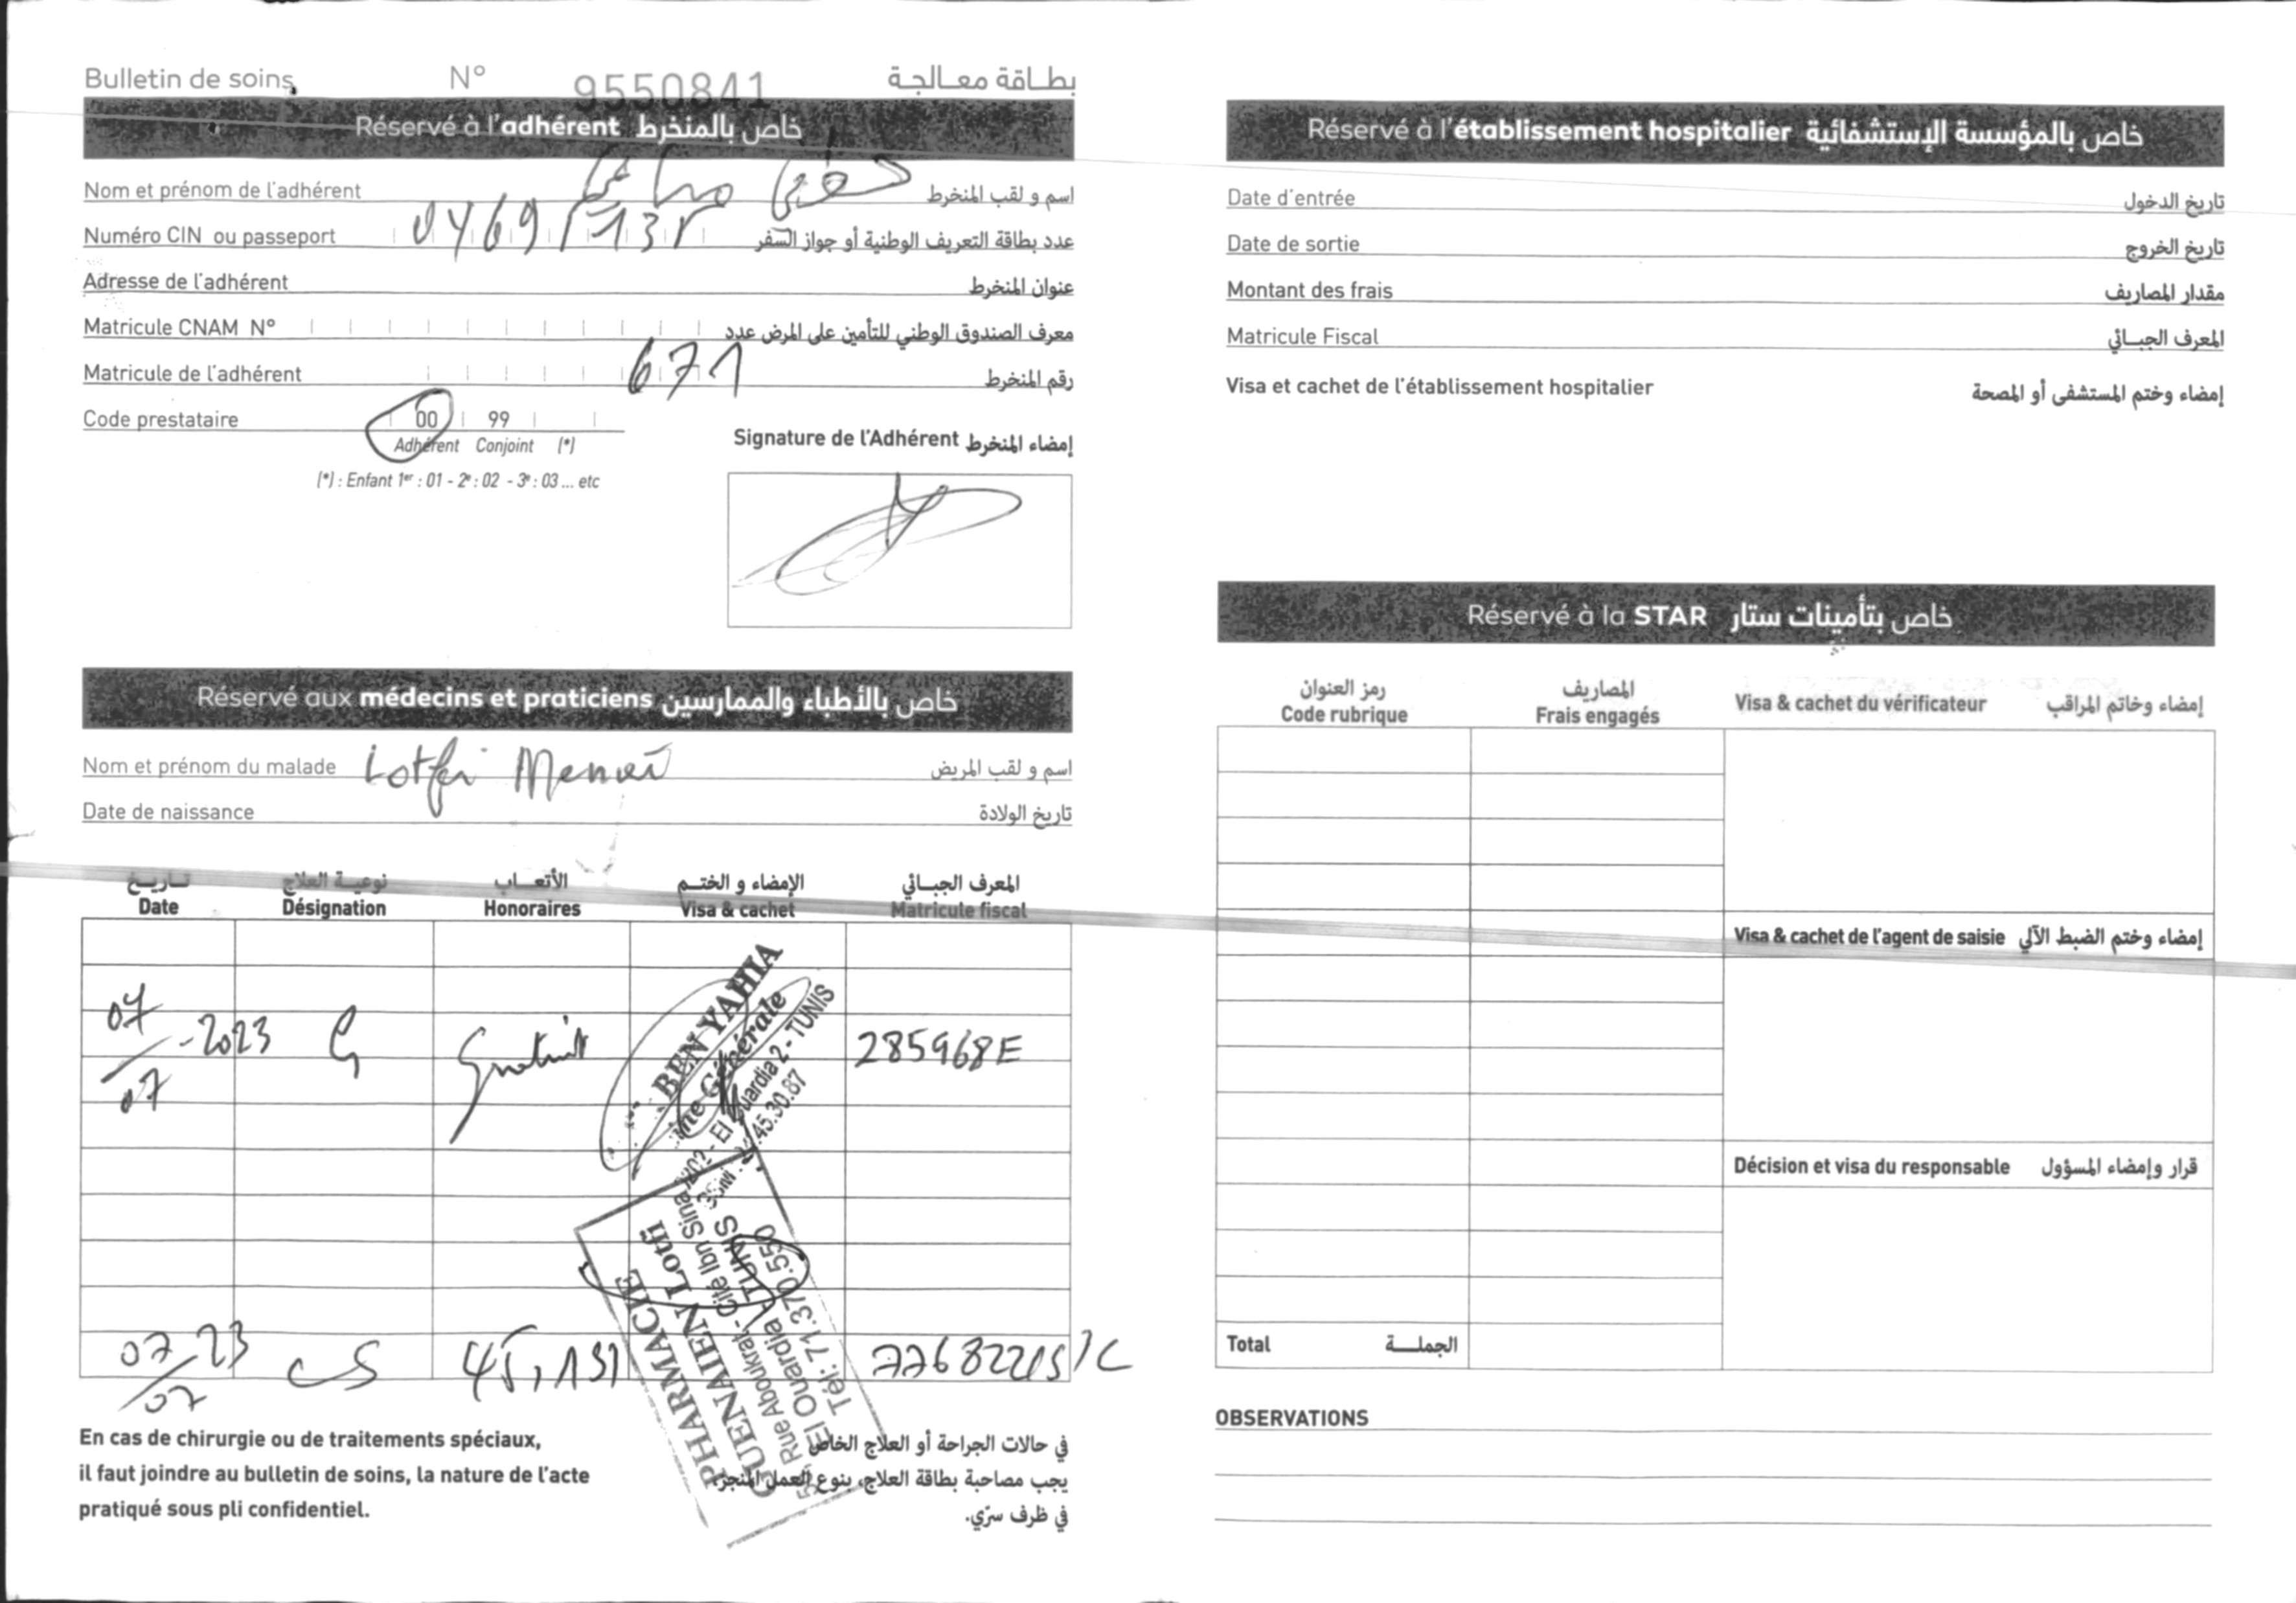 Bulletin de soins N° 9550841 بطاقة معالجة
Réservé à l'adhérent خاص بالمنخرط
Nom et prénom de l'adhérent اسم و لقب المنخرط
Numéro CIN ou passeport عدد بطاقة التعريف الوطنية أو جواز السفر
Adresse de l'adhérent عنوان المنخرط
Matricule CNAM N° معرف الصندوق الوطني للتأمين على المرض عدد
Matricule de l'adhérent 671 رقم المنخرط
Code prestataire 00 99
Adhérent Conjoint (*)
(*) : Enfant 1er : 01 - 2e : 02 - 3e : 03 ... etc
Signature de l'Adhérent إمضاء المنخرط
Réservé aux médecins et praticiens خاص بالأطباء والممارسين
Nom et prénom du malade Lotfi اسم و لقب المريض
Date de naissance تاريخ الولادة
تاريخ نوعية العلاج الأتعاب الإمضاء و الختم المعرف الجبائي
Date Désignation Honoraires Visa & cachet Matricule fiscal
07/07-2023 G Gratuit 285968E
BEN YAHIA
Générale
El Ouardia 2 - TUNIS
45.30.87
PHARMACIE
GUENAIEN Lotfi
Rue Aboukrat - Cité Ibn Sina
El Ouardia TUNIS
Tél: 71.370.550
07/07 23 CS 45,131
En cas de chirurgie ou de traitements spéciaux,
il faut joindre au bulletin de soins, la nature de l'acte
pratiqué sous pli confidentiel.
في حالات الجراحة أو العلاج الخاص
يجب مصاحبة بطاقة العلاج، بنوع العمل المنجز،
في ظرف سرّي.
Réservé à l'établissement hospitalier خاص بالمؤسسة الإستشفائية
Date d'entrée تاريخ الدخول
Date de sortie تاريخ الخروج
Montant des frais مقدار المصاريف
Matricule Fiscal المعرف الجبائي
Visa et cachet de l'établissement hospitalier إمضاء وختم المستشفى أو المصحة
Réservé à la STAR خاص بتأمينات ستار
رمز العنوان المصاريف
Code rubrique Frais engagés Visa & cachet du vérificateur إمضاء وخاتم المراقب
Visa & cachet de l'agent de saisie إمضاء وختم الضبط الآلي
Décision et visa du responsable قرار وإمضاء المسؤول
Total الجملة
OBSERVATIONS